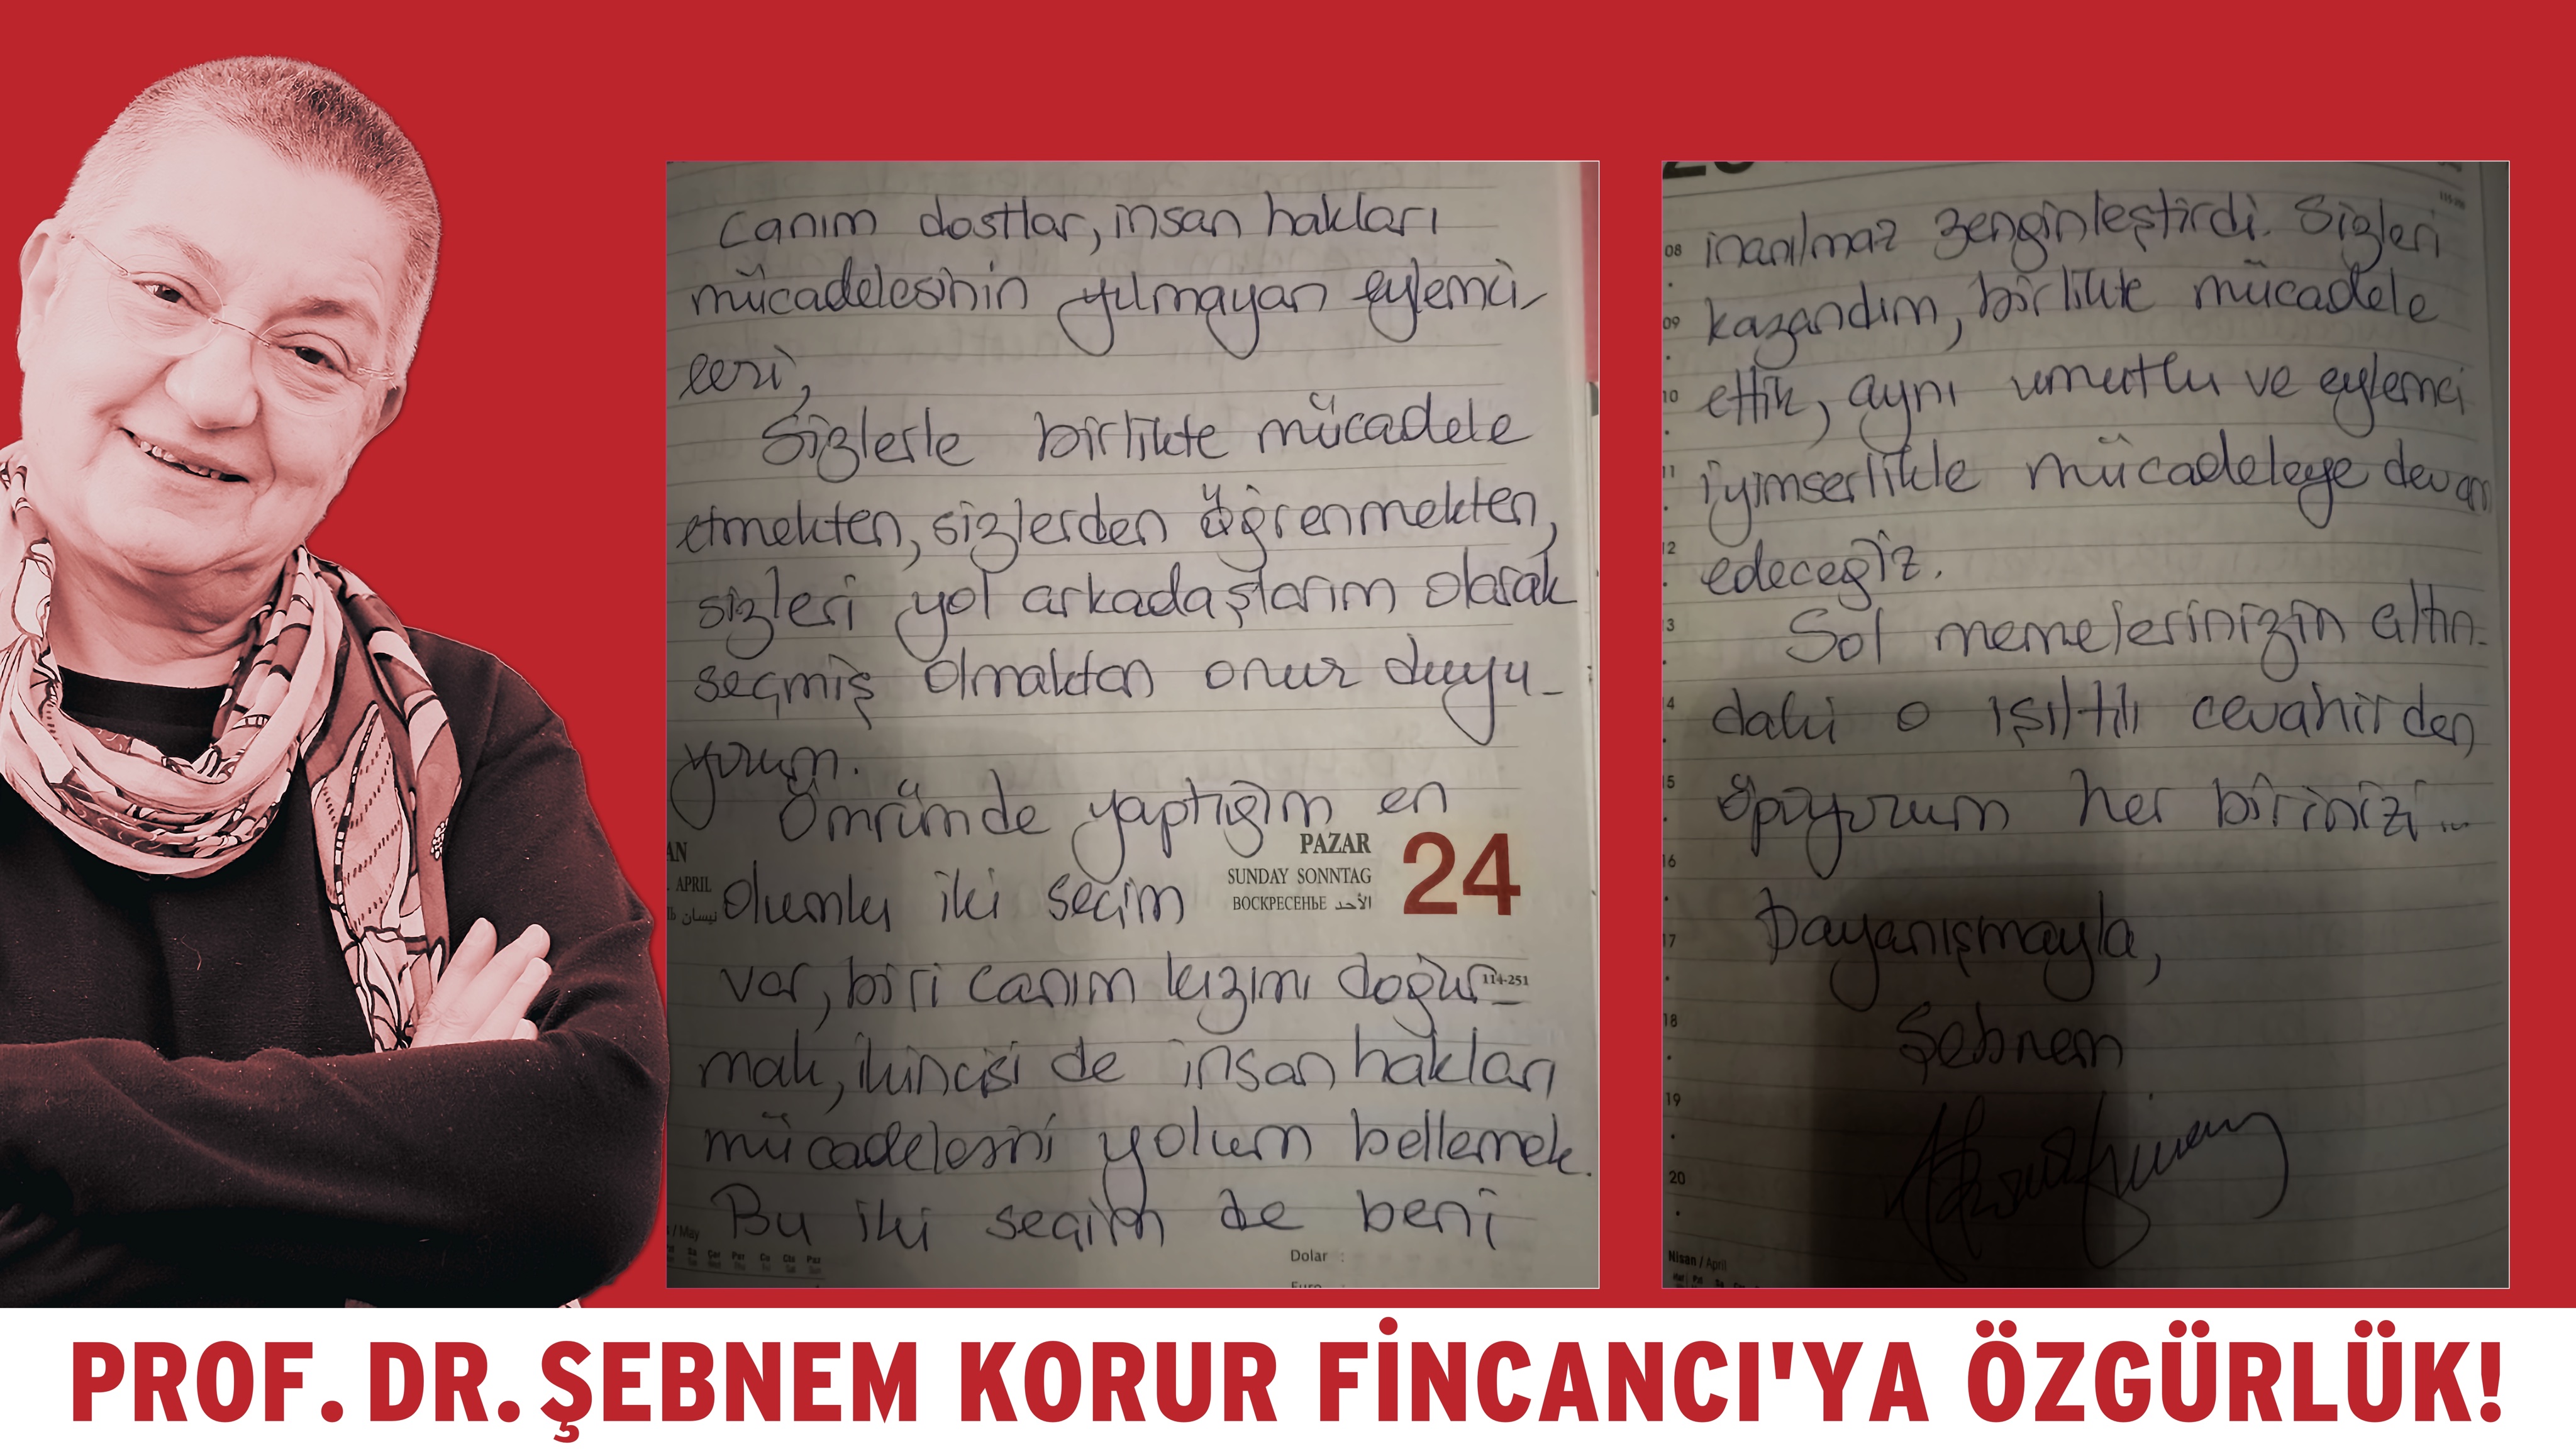 Canım dostlar, insan hakları
mücadelesinin yılmayan eylemci-
leri,
Sizlerle birlikte mücadele
etmekten, sizlerden öğrenmekten,
sizleri yol arkadaşlarım olarak
seçmiş olmaktan onur duyu-
yorum.
Ömrümde yaptığım en
PAZAR
24
AN
APRIL
SUNDAY SONNTAG
نيسان
olumlu iki seçim
ВОСКРЕСЕНЬЕ الأحد
var, biri canım kızımı doğur-
114-251
mak, ikincisi de insan hakları
mücadelesini yolum bellemek.
Bu iki seçim de beni
/ May
Sa Çar Per Cu Cts Paz
Dolar :
Euro
08 inanılmaz zenginleştirdi. Sizleri
09 kazandım, birlikte mücadele
10 ettik, aynı umutlu ve eylemci
11 iyimserlikle mücadeleye devam
12 edeceğiz.
13 Sol memelerinizin altın-
14 daki o ışıltılı cevahirden
15 öpüyorum her birinizi...
16
17 Dayanışmayla,
18 Şebnem
19
20
Nisan / April
PROF. DR. ŞEBNEM KORUR FİNCANCI'YA ÖZGÜRLÜK!